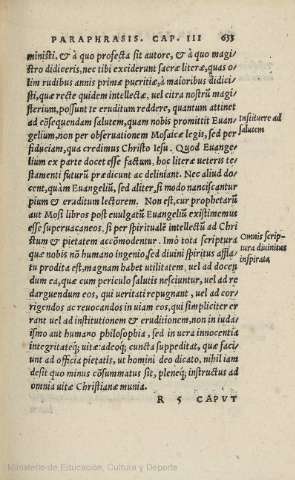 PARAPHRASIS. CAP. III 633
ministi. & à quo profecta sit autore, & à quo magi
stro didiceris, nec tibi exciderunt sacræ literæ, quas o
lim rudibus annis primæ pueritiæ, à maioribus didici
sti, quæ recte quidem intellectæ, uel citra nostrū magi
sterium, possunt te eruditum reddere, quantum attinet
ad cōsequendam salutem, quam nobis promittit Euan
gelium, non per obseruationem Mosaicæ legis, sed per
fiduciam, qua credimus Christo Iesu. Quod Euange
lium ex parte docet esse factum, hoc literæ ueteris te
stamenti futurū prædicant ac deliniant. Nec aliud do
cent, quàm Euangeliū, sed aliter, si modo nanciscantur
pium & eruditum lectorem. Non est, cur prophetarū
aut Mosi libros post euulgatū Euangeliū existimemus
esse superuacaneos, si per spirituale intellectū ad Chri
stum & pietatem accōmodentur. Imò tota scriptura
quæ nobis nō humano ingenio, sed diuini spiritus affla
tu prodita est, magnam habet utilitatem, uel ad docen
dum ea, quæ cum periculo salutis nesciuntur, uel ad re
darguendum eos, qui ueritati repugnant, uel ad cor/
rigendos ac reuocandos in uiam eos, qui simpliciter er
rant uel ad institutionem & eruditionem, non in iuda/
ismo aut humano philosophia, sed in uera innocentia
integritateq́; uitæ: adeoq́; cuncta suppeditat, quæ faci/
unt ad officia pietatis, ut homini deo dicato, nihil iam
desit quo minus cōsummatus sit, pleneq́; instructus ad
omnia uitæ Christianæ munia.
R 5 CAPVT
Instituere ad
salutem
Omnis scrip-
tura diuinitus
inspirata
Ministerio de Educación, Cultura y Deporte